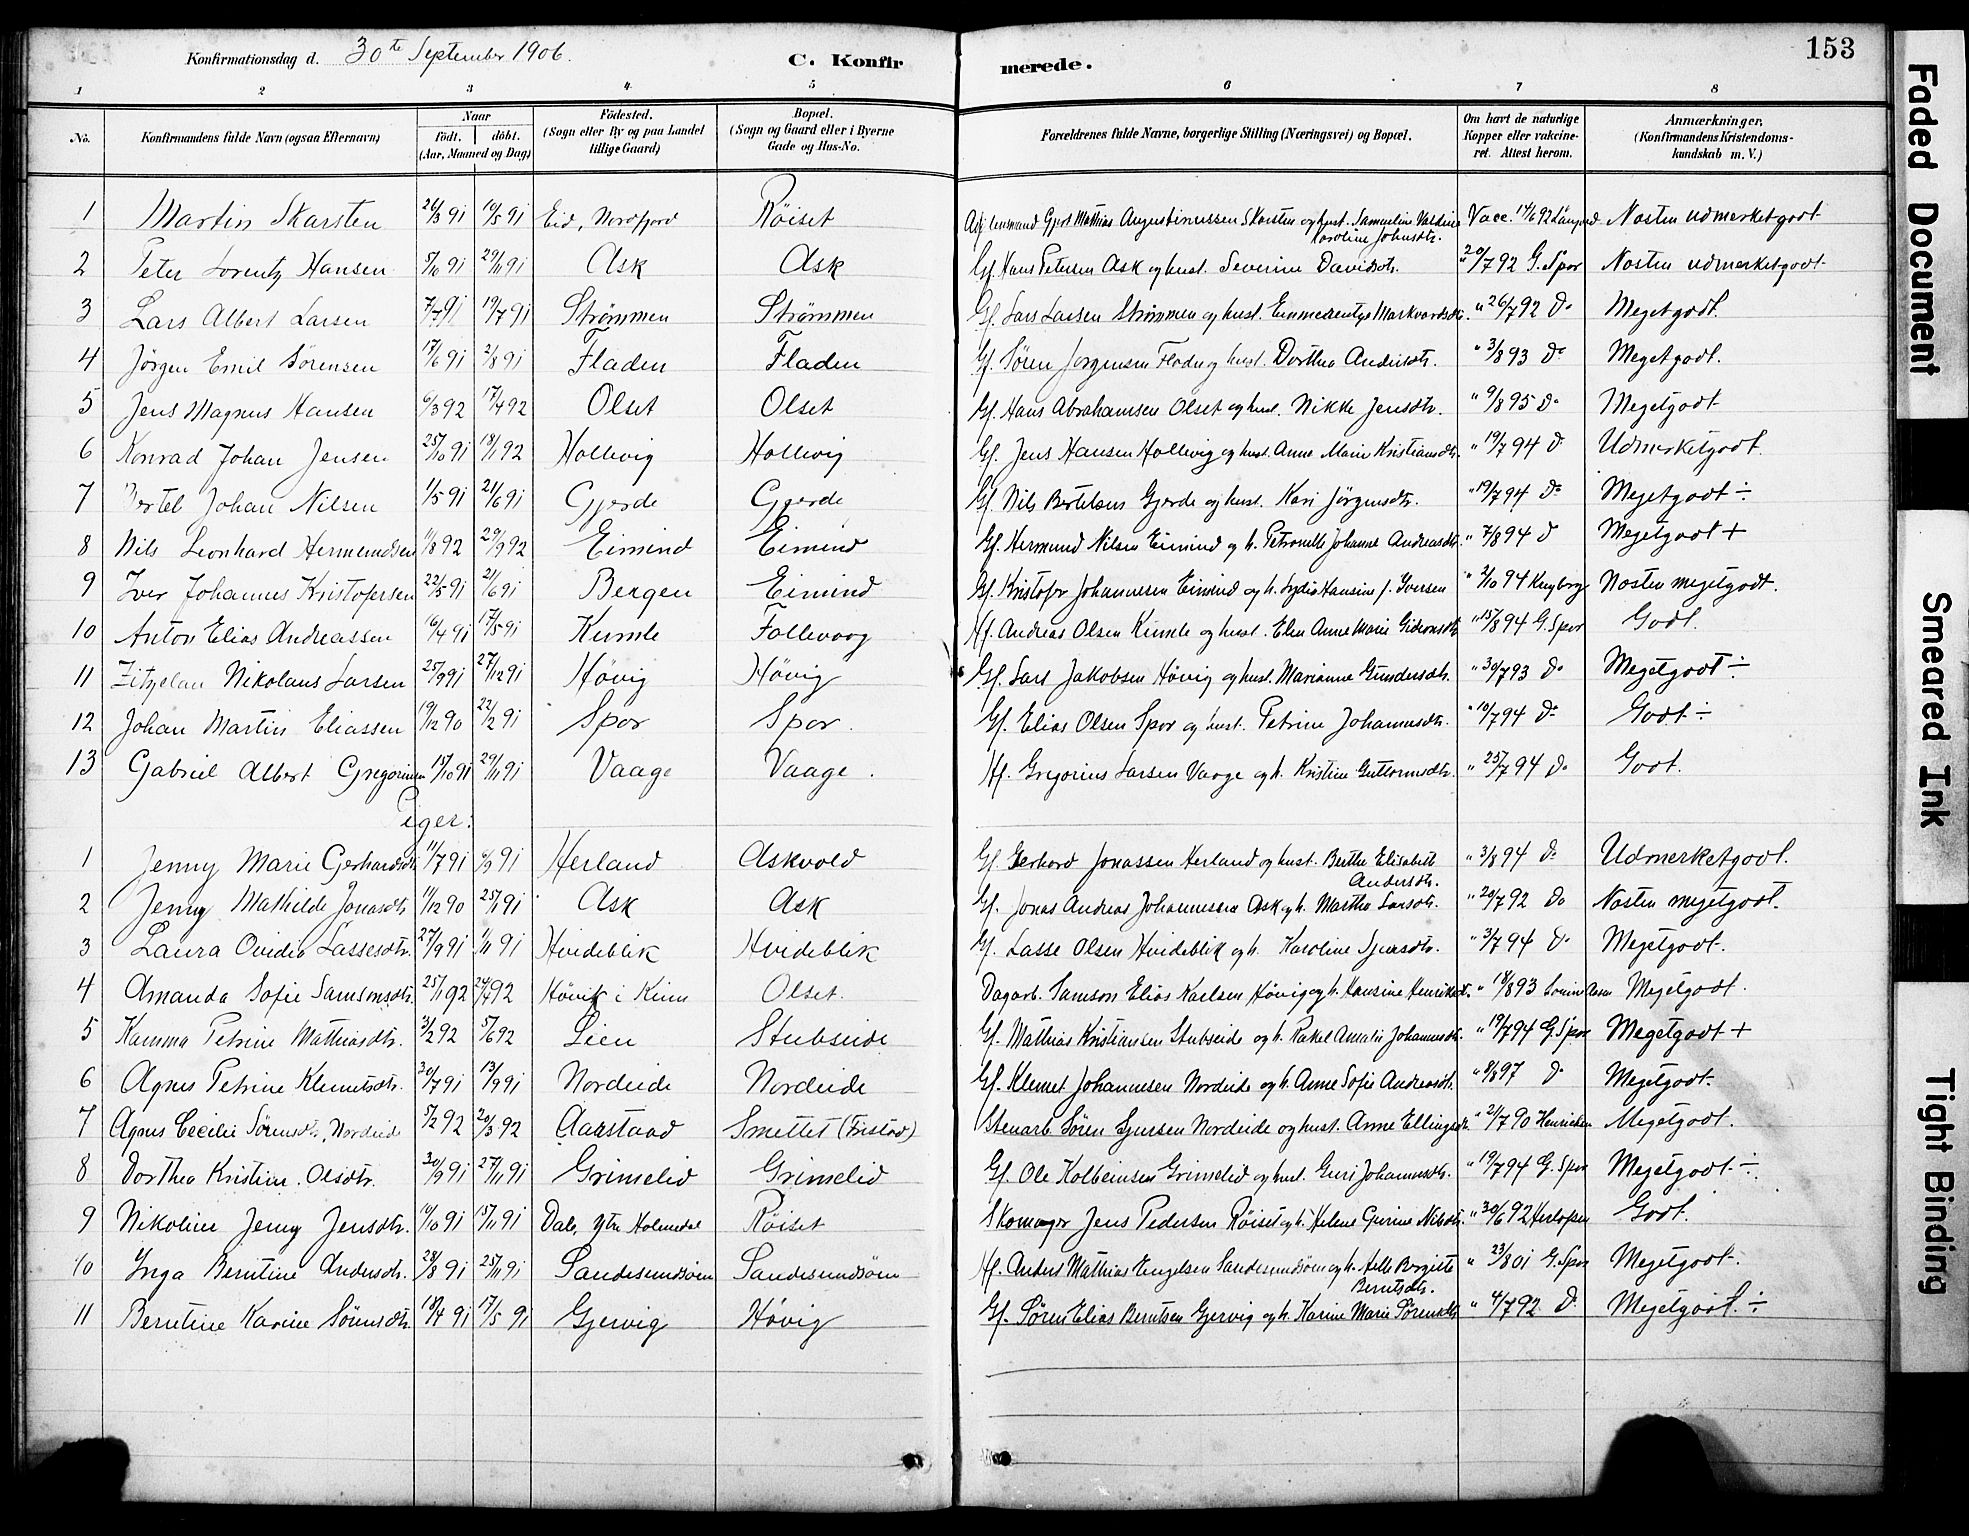 Konfirmationsdag d. 30te September 1906. C. Konfirmerede. 153
1 2 3 4 5 6 7 8
No. Konfirmandens fulde Navn (ogsaa Efternavn) Naar födt. döbt. (Aar, Maaned og Dag) Födested. (Sogn eller By og paa Landet tillige Gaard) Bopæl. (Sogn og Gaard eller i Byerne Gade og Hus-No. Forældrenes fulde Navne, borgerlige Stilling (Næringsvei) og Bopæl. Om havt de naturlige Kopper eller vakcineret. Attest herom. Anmærkninger, (Konfirmandens Kristendomskundskab m. V.)
1 Martin Skarsten 26/3 91 16/5 91 Eid, Nordfjord Röiset Gjert Mathias Augustinussen Skarsten og hust. Samueline Valdine Karoline Johnsdtr. Vacc. 14/6 92 Næsten udmerketgodt
2 Peter Lorentz Hansen 5/10 91 29/11 91 Ask Ask Gf. Hans Petersen Ask og hust. Severine Davidsdtr. " 20/7 92 G. Spor Næsten udmerketgodt
3 Lars Albert Larsen 7/7 91 19/7 91 Strømmen Strømmen Gf. Lars Larsen Strømmen og hust. Markvardsdtr. " 26/7 92 Do Megetgodt.
4 Jörgen Emil Sörensen 17/6 91 2/8 91 Fladen Fladen Gf. Sören Jörgensen Fladen og hust. Dorthea Andersdtr. " 3/8 93 Do Megetgodt.
5 Jens Magnus Hansen 6/3 92 17/4 92 Olset Olset Gf. Hans Abrahamsen Olset og hust. Nikke Jensdtr. " 9/8 95 Do Megetgodt
6 Konrad Johan Jensen 25/10 91 18/1 92 Hollevig Hollevig Gf. Jens Hansen Hollevig og hust. Anne Marie Kristiansdtr. " 19/7 94 Do Udmerketgodt.
7 Bertel Johan Nilsen 1/5 91 21/6 91 Gjerde Gjerde Gf. Nils Bertelsen Gjerde og hust. Kari Jörgensdtr. " 19/7 94 Do Megetgodt ÷
8 Nils Leonhard Hermundsen 11/8 92 29/9 92 Eimind Eimind Gf. Hermund Nilsen Eimind og h. Petronelle Johanne Andreasdtr. " 7/8 94 D Megetgodt +
9 Iver Johannes Kristofersen 22/5 91 21/6 91 Bergen Eimind Gf. Kristofer Johannessen Eimind og h. Lydia Hansine f. Iversen " 2/10 94 Næsten megetgodt.
10 Anton Elias Andreassen 16/4 91 17/5 91 Kumle Follevaag Hf. Andreas Olsen Kumle og hust. Elen Anne Marie Gideonsdtr. " 15/8 94 G. Spor Godt.
11 Nikolaus Larsen 25/9 91 27/12 91 Hövig Hövig Gf. Lars Jakobsen Hövig og hust. Marianne Gundersdtr. " 30/7 93 Do Megetgodt ÷
12 Johan Martin Eliassen 19/12 90 22/2 91 Spor Spor. Gf. Elias Olsen Spor og hust. Petrine Johannesdtr. " 10/7 94 Do Godt ÷
13 Gabriel Albert Gregoriusen 15/10 91 29/11 91 Vaage Vaage. Hf. Gregorius Larsen Vaage og h. Kristine Guttormsdtr. " 25/7 94 Do Godt.
Piger:
1 Jenny Marie Gerhardsdtr. 11/7 91 6/9 91 Herland Askvold Gf. Gerhard Jonassen Herland og hust. Berthe Elisabeth Andersdtr. " 3/8 94 Do Udmerketgodt.
2 Jenny Mathilde Jonasdtr. 11/12 90 25/1 91 Ask Ask Gf. Jonas Andreas Johannessen Ask og h. Marthe Larsdtr. " 20/7 92 Do Næsten megetgodt.
3 Laura Ovidia Lassesdtr. 27/9 91 1/11 91 Hvideblik Hvideblik Gf. Lasse Olsen Hvideblik og h. Karoline Sjursdtr. " 3/7 94 Do Megetgodt.
4 Amanda Sofie Samsonsdtr. 25/1 92 24/7 92 Hövik i Kinn Olset. Dagarb. Samson Elias Karlsen Hövig og h. Hansine Henriksdtr. " 18/8 93 Megetgodt.
5 Kamma Petrine Mathiasdtr. 3/2 92 5/6 92 Lien Stubseide Gf. Mathias Kristiansen Stubseide og h. Rakel Amalie Johannesdtr. " 19/7 94 G. Spor Megetgodt +
6 Agnes Petrine Klemetsdtr. 20/7 91 13/9 91 Nordeide Nordeide Gf. Klemet Johannesen Nordeide og h. Anne Sofie Andreasdtr. " 8/8 97 D Megetgodt.
7 Agnes Cecilie Sörensdtr. Nordeide 5/2 92 20/3 92 Aarstad Smettet (Tristad) Stenarb. Sören Sjursen Nordeide og hust. Anne Ellingsdtr. " 21/7 90 Henrichsen Megetgodt.
8 Dorthea Kristine Olsdtr. 30/9 91 27/11 91 Grimelid Grimelid Gf. Ole Kolbeinsen Grimelid og hust. Guri Johannesdtr. " 19/7 94 G. Spor Megetgodt ÷.
9 Nikoline Jenny Jensdtr. 14/10 91 15/11 91 Dale, Ytre Holmedal Röiset Skomager Jens Pedersen Röiset og h. Helene Gurine Nilsdtr. " 30/6 92 Godt.
10 Inga Berntine Andersdtr. 28/8 91 25/11 91 Sandesundsöen Sandesundsöen Hf. Anders Mathias Engelsen Sandesundsöen og h. Berntsdtr. " 23/8 01 G. Spor Megetgodt.
11 Berntine Karine Sörensdtr. 18/4 91 17/5 91 Gjervig Hövig Gf. Sören Elias Berntsen Gjervig og h. Karine Marie Sörensdtr. " 4/7 92 D. Megetgodt. ÷
Faded Document
Smeared Ink
Tight Binding